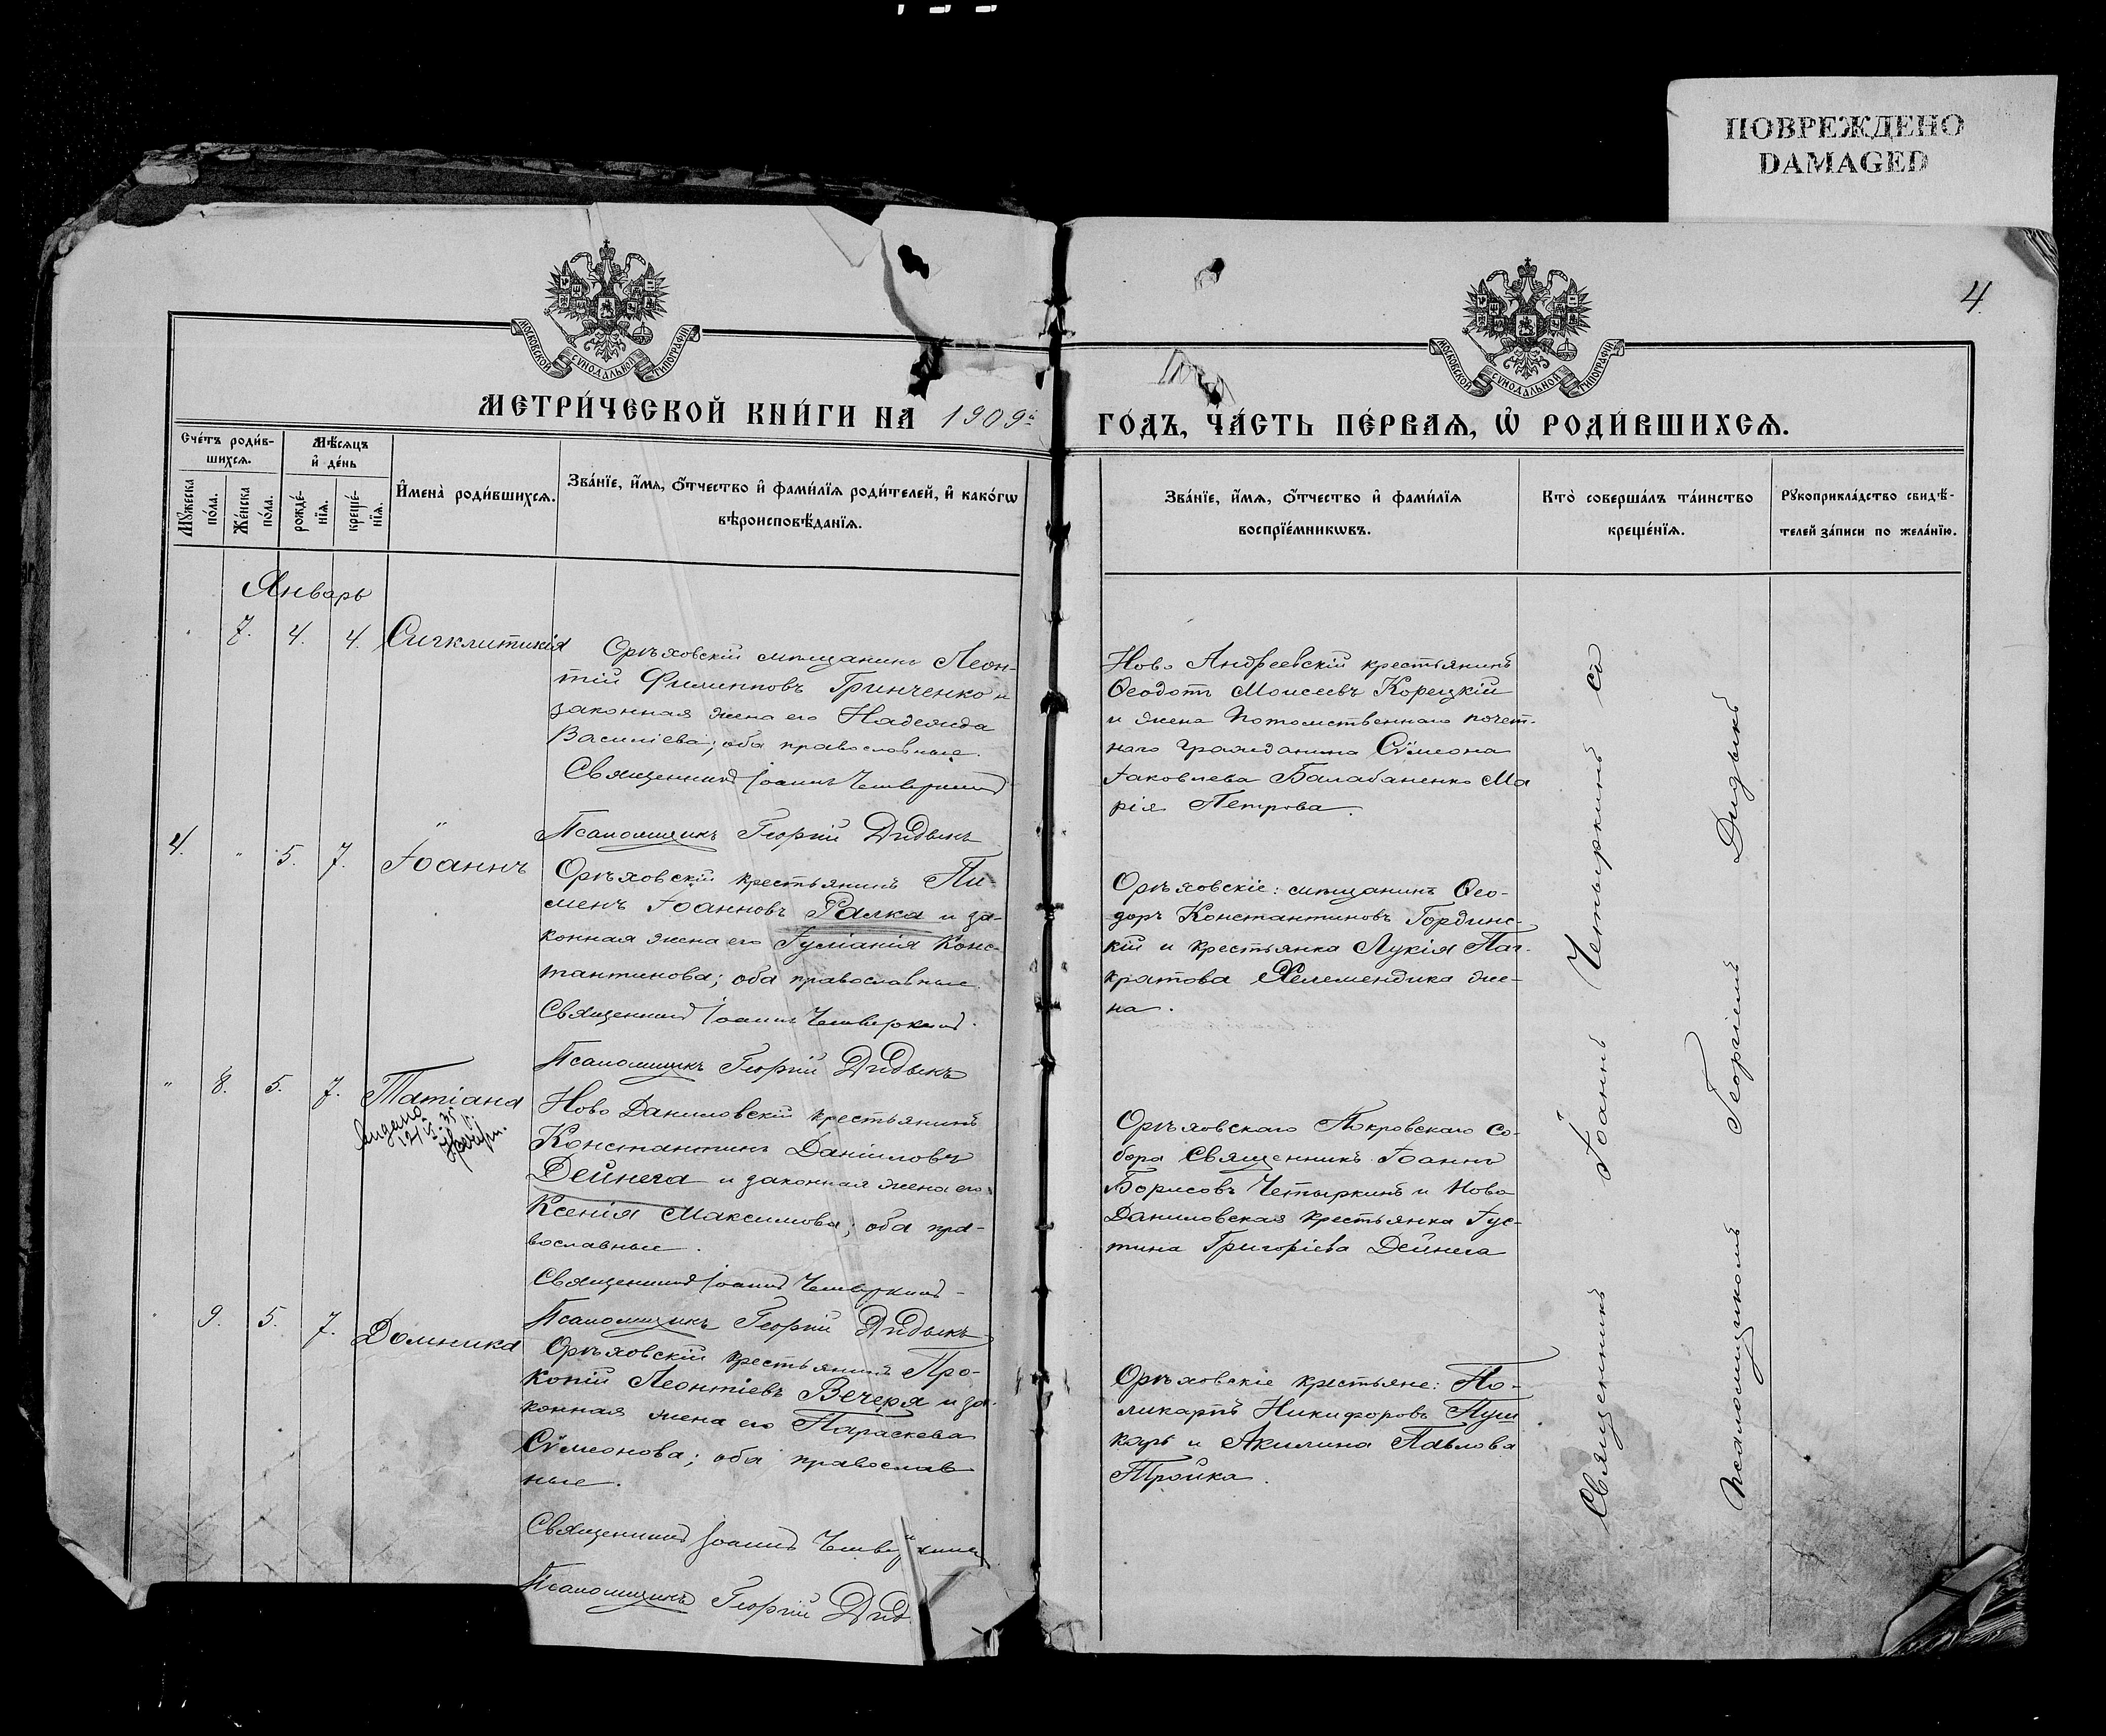 ПОВРЕЖДЕНО
DAMAGED
4.
МОСКОВСКОЙ СѴНОДАЛЬНОЙ ТИПОГРАФІИ
МОСКОВСКОЙ СѴНОДАЛЬНОЙ ТИПОГРАФІИ
МЕТРИ́ЧЕСКОЙ КНИ́ГИ НА 1909й
ГО́ДЪ, ЧА́СТЬ ПЕ́РВАѦ, Ѡ҆ РОДИ́ВШИХСѦ.
Сче́тъ роди́в-
шихсѧ.
Мꙋ́жеска по́ла.
Же́нска по́ла.
Мѣ́сѧцъ
и҆ де́нь
рожде́-
нїѧ.
креще́-
нїѧ.
И҆мена̀ роди́вшихсѧ.
Зва́нїе, и҆́мѧ, ѻ҆́тчество и҆ фами́лїѧ роди́телей, и҆ како́гѡ
вѣроисповѣ́данїѧ.
Зва́нїе, и҆́мѧ, ѻ҆́тчество и҆ фами́лїѧ
воспрїе́мникѡвъ.
Кто̀ соверша́лъ та́инство
креще́нїѧ.
Рꙋкоприкла́дство свидѣ́-
телей за́писи по жела́нїю.
Январь
" 7. 4. 4. Сигклитикія
Орѣховскій мѣщанинъ Леон-
тій Филипповъ Гринченко и
законная жена его Надежда
Василіева; оба православные.
Священникъ Іоаннъ Четыркинъ
Псаломщикъ Георгій Дидыкъ
Ново Андреевскій крестьянинъ
Ѳеодотъ Моисеевъ Корецкій
и жена потомственнаго почет-
наго гражданина Сѵмеона
Іаковлева Балабаненко Ма
рія Петрова.
4. " 5. 7. Іоаннъ
Орѣховскій крестьянинъ Пи-
менъ Іоанновъ Галка и за-
конная жена его Іуліанія Конс-
тантинова; оба православные.
Священникъ Іоаннъ Четыркинъ.
Псаломщикъ Георгій Дидыкъ
Орѣховскіе: мѣщанинъ Ѳео-
доръ Константиновъ Гординс-
кій и крестьянка Лукія Пан-
кратова Желемендика же-
на.
" 8. 5. 7. Татіана
Ново Даниловскій крестьянинъ
Константинъ Даніиловъ
Дейнега и законная жена его
Ксенія Максимова; оба пра-
вославные.
Священникъ Іоаннъ Четыркинъ
Псаломщикъ Георгій Дидыкъ
Орѣховскаго Покровскаго Со-
бора Священникъ Іоаннъ
Борисовъ Четыркинъ и Ново
Даниловская крестьянка Іус-
тина Григоріева Дейнега
" 9. 5. 7. Домника
Орѣховскій крестьянинъ Про-
копій Леонтіевъ Вечеря и за-
конная жена его Параскева
Сѵмеонова; оба православ
ные.
Священникъ Іоаннъ Четыркинъ
Псаломщикъ Георгій Дид
Орѣховскіе крестьяне: По-
ликарпъ Никифоровъ Пуш
каръ и Акилина Павлова
Тройка.
Священникъ Іоаннъ Четыркинъ съ
Псаломщикомъ Георгіемъ Дидыкъ